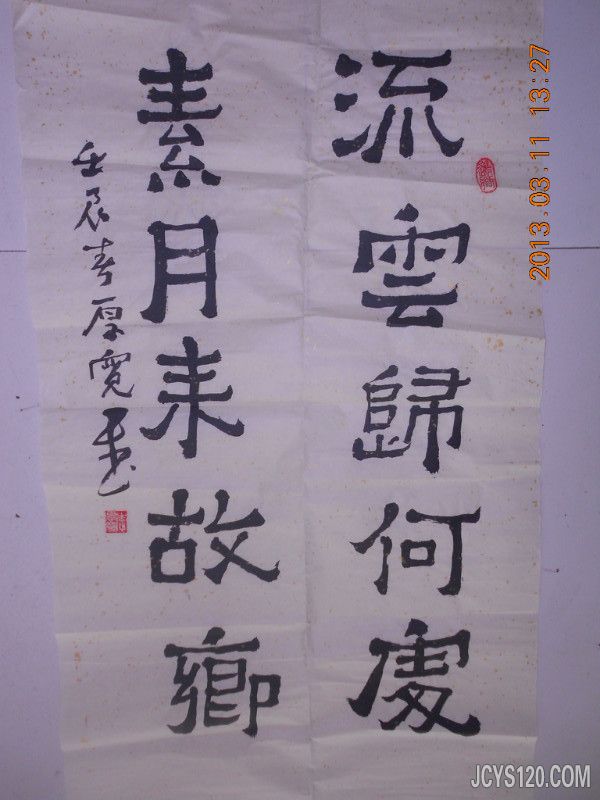 流雲歸何處
素月来故鄉
壬辰春厚寬
2013.03.11 13:27
JCYS120.COM